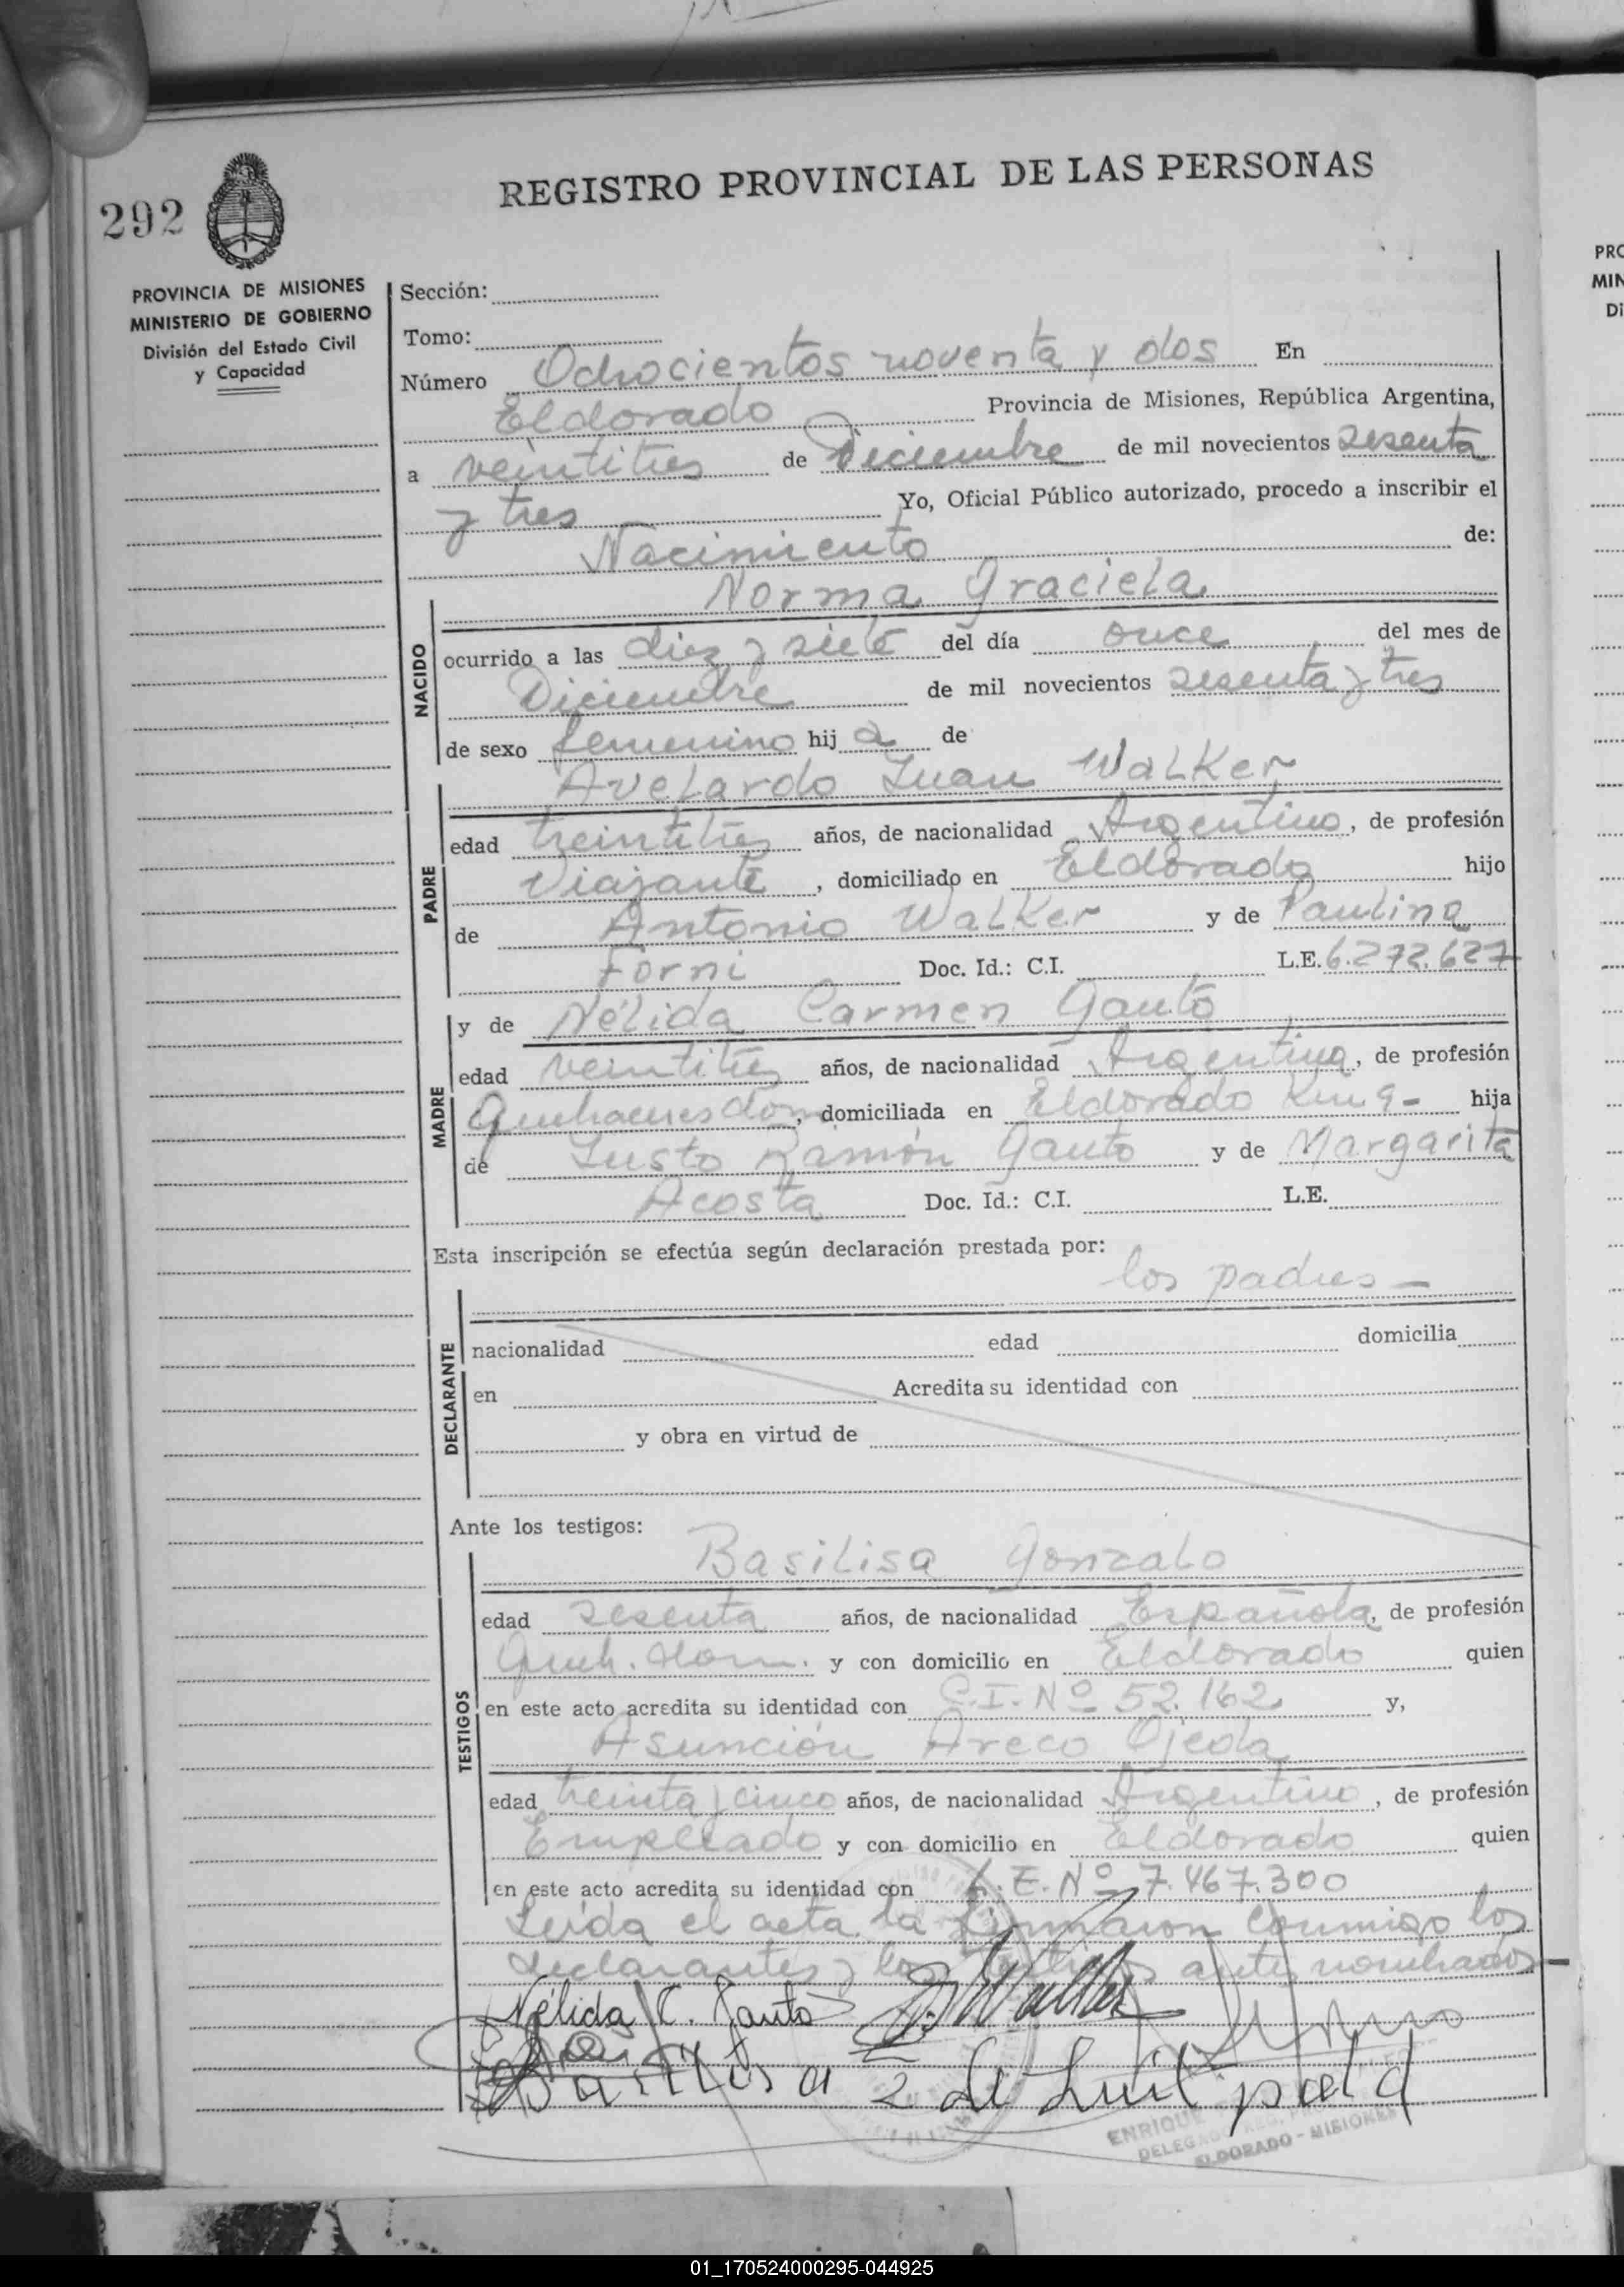 292
REGISTRO PROVINCIAL DE LAS PERSONAS
PROVINCIA DE MISIONES
MINISTERIO DE GOBIERNO
División del Estado Civil
y Capacidad
Sección:
Tomo:
Número Ochocientos noventa y dos En
Eldorado Provincia de Misiones, República Argentina,
a veintitres de Diciembre de mil novecientos sesenta
y tres Yo, Oficial Público autorizado, procedo a inscribir el
Nacimiento de:
Norma Graciela
NACIDO
ocurrido a las diez y siete del día once del mes de
Diciembre de mil novecientos sesenta y tres
de sexo femenino hij a de
Avelardo Juan Walker
PADRE
edad treintitres años, de nacionalidad Argentino, de profesión
Viajante, domiciliado en Eldorado hijo
de Antonio Walker y de Paulina
Forni Doc. Id.: C.I. L.E. 6.272.627
y de Nélida Carmen Gauto
MADRE
edad veintitres años, de nacionalidad Argentina, de profesión
Quehaceres dom, domiciliada en Eldorado Km 9- hija
de Justo Ramón Gauto y de Margarita
Acosta Doc. Id.: C.I. L.E.
Esta inscripción se efectúa según declaración prestada por:
los padres —
DECLARANTE
nacionalidad edad domicilia
en Acredita su identidad con
y obra en virtud de
Ante los testigos:
Basilisa Gonzalo
TESTIGOS
edad sesenta años, de nacionalidad Española, de profesión
Queh. dom. y con domicilio en Eldorado quien
en este acto acredita su identidad con C.I. Nº 52.162 y,
Asunción Areco Ojeda
edad treinta y cinco años, de nacionalidad Argentino, de profesión
Empleado y con domicilio en Eldorado quien
en este acto acredita su identidad con L.E. Nº 7.467.300
Leída el acta la firmaron conmigo los
declarantes y los testigos ante nombrados —
Nélida C. Gauto Walker
Basilisa de
ENRIQUE
ELDORADO - MISIONES
PRO
MIN
Di
01_170524000295-044925